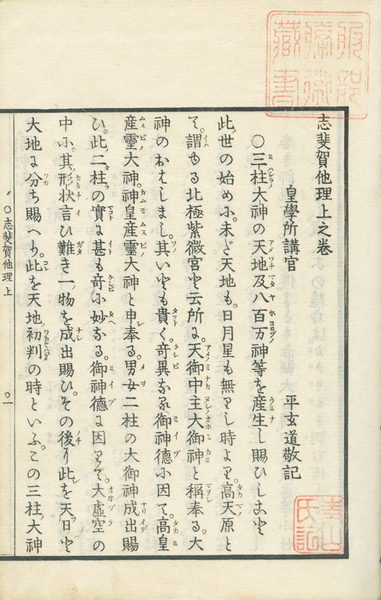 志斐賀他理上之巻
皇學所講官　平玄道敬記
○三柱大神の天地及八百万神等を産生し賜ひしこと
此世の始めに。未ど天地も。日月星も無りし時に。高天原と
て。謂ゆる北極紫微宮と云所に。天御中主大御神と稱奉る。大
神のおはしまし。其いとも貴く奇異なる御神德に因て。高皇
産靈大神。神皇産靈大神と申奉る。男女二柱の大御神成出賜
ひ。此二柱の實に甚も奇に妙なる。御神德に因てぞ。大虚空の
中に其形状言ひ難き一物を成出賜ひ。その後ち此を天日と
大地に分ち賜へり。これを天地初判の時といふ。この三柱大神
○志斐賀他理 上
○一